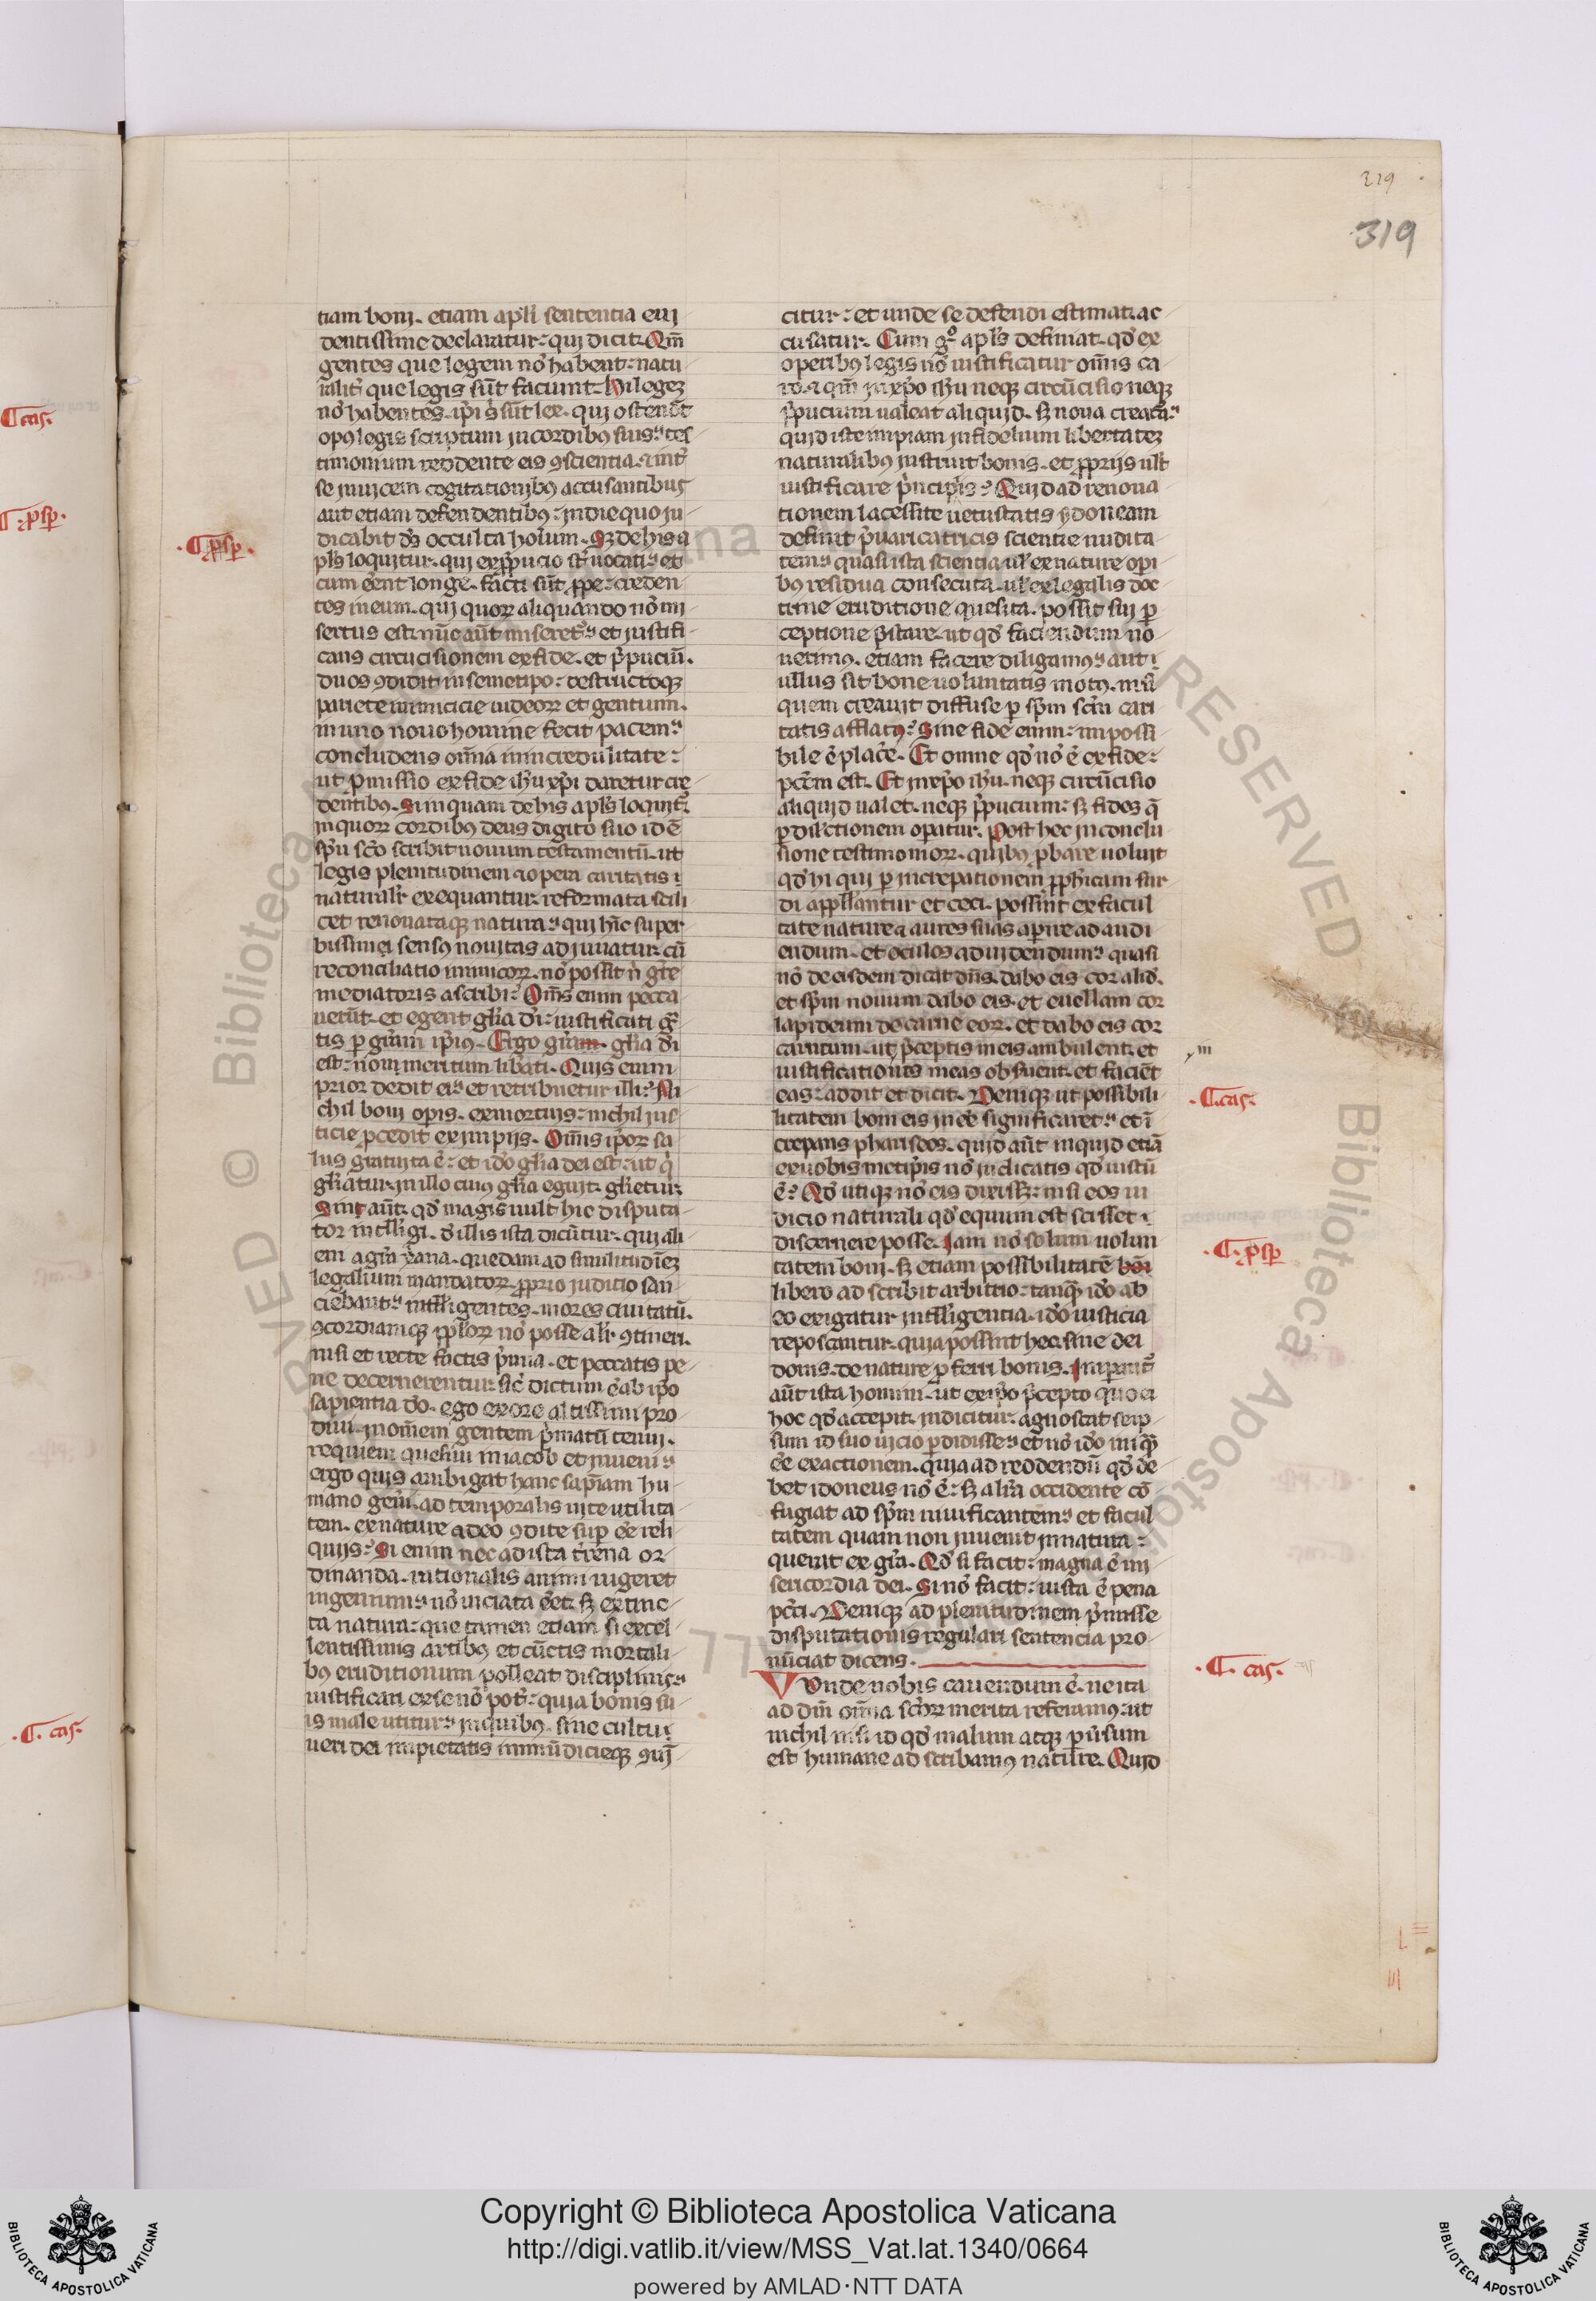 219
319
tiam boni. etiam apl'i sententia eui
dentissime declaratur: qui dicit. Qm̄
gentes que legem nō habent: natu
ralit' que legis sūt faciunt. Hi legez
nō habentes. ip̄i s' sūt lex. qui ostendūt
opꝰ legis scriptum in cordibꝰ suis: tes
timonium reddente eis ꝯscientia. ⁊ int'
se inuicem cogitationibꝰ accusantibus
aut etiam defendentibꝰ: in die quo iu
dicabit dš occulta hoīum. Sz de his a
pl's loquitur. qui ex p̄pucio st' uocati: et
cum eēnt longe. facti sūt ꝓpe: creden
tes in eum. qui quorꝝ aliquando nō mi
sertus est: nūc aūt miseret': et iustifi
cans circūcisionem ex fide. et p̄puciū.
duos ꝯdidit in semetipo: destructoqꝫ
pariete inimicicie iudeorꝝ et gentium.
in uno nouo homine fecit pacem:
concludens om̄ia in incredulitate:
ut ꝓmissio ex fide ih'u xp̄i daretur cre
dentibꝰ. Si inquam de his apl's loquit'
in quorꝝ cordibꝰ deus digito suo id ē
sp̄u sc̄o scribit nouum testamentū. ut
legis plenitudinem ⁊ opera caritatis
naturalr̄ exequantur: reformata scili
cet renouataqꝫ natura: qui hīc super
bissimei sensꝰ nouitas adiuuatur. cū
reconciliatio inimicorꝝ. nō possit n̄ gr̄e
mediatoris ascribi: Om̄s enim pecca
uerūt. et egent gl'ia d'i: iustificati gr̄
tis p gr̄am ip̄iꝰ. Ergo gr̄am. gl'ia d'i
est: non meritum lib'ati. Quis enim
prior dedit ei: et retribuetur illi: Ni
chil boni opis. ex mortuis: nichil ius
ticie ꝓcedit ex impijs. Om̄is ip̄orꝝ sa
lus gratuita ē: et id'o gl'ia dei est: ut q'
gl'iatur: in illo cuiꝰ gl'ia eguit. gl'ietur.
Sin aūt. qd' magis uult hic disputa
tor intll'igi. d' illis ista dicūtur. qui ali
em a gr̄a xp̄iana. quedam ad similitudīez
legalium mandatorꝝ. ꝓprio iudicio san
ciebant: intll'igentes. mores ciuitatū.
ꝯcordiamqꝫ ip̄lorꝝ nō posse alr̄ ꝯtineri.
nisi et recte factis p̄mia. et peccatis pe
ne decernerentur: sic' dictum ē ab ip̄o
sapientia d'o. ego ex ore altissimi pro
diui. in om̄em gentem p̄matū tenui.
requiem quesiui in iacob et inueni:
ergo quis ambigat hanc sap̄iam hu
mano geṅi. ad temporalis uite utilita
tem. ex nature a deo ꝯdite sup eē reli
quijs: Si enim nec ad ista t'rena or
dinanda. rationalis animi uigeret
ingenium: nō uiciata eēt. sꝫ extinc
ta natura: que tamen etiam si excel
lentissimis artibꝰ et cūctis mortali
bꝰ eruditionum polleat disciplinis:
iustificari ex se nō pot': quia bonis su
is male utitur: in quibꝰ. sine cultu
ueri dei impietatis inmūdicieqꝫ ꝯui
citur: et unde se defendi estimat: ac
cusatur. Cum gͦ apl's definiat. qd' ex
operibꝰ legis nō iustificatur om̄is ca
ro. ⁊ qm̄ in xp̄o ih'u neqꝫ circūcisio neqꝫ
p̄pucium ualeat aliquid. sꝫ noua creatura:
quid iste impiam infidelium libertatez
naturalibꝰ instruit bonis. et ꝓprijs uult
iustificare p̄ncipijs: Quid ad renoua
tionem lacessite uetustatis ydoneam
definit p̄uaricatricis scientie nudita
tem: quasi ista scientia ul' ex nature opi
bꝰ residua consecuta. ul' ex legalis doc
trine eruditione quesita. possit sui p
ceptione p̄stare. ut qd' faciendum no
uerimꝰ. etiam facere diligamꝰ: aut
ullus sit bone uoluntatis motꝰ. nisi
quem creauit diffuse p sp̄m sc̄m cari
tatis afflatꝰ: Sine fide enim: impossi
bile ē placēre. Et omne qd' nō ē ex fide:
pc̄tm est. Et in xp̄o ih'u. neqꝫ circūcisio
aliquid ualet. neqꝫ p̄pucium: sꝫ fides q̄
p dilectionem opatur. Post hec in conclu
sione testimoniorꝝ. quibꝰ ꝓbare uoluit
qd' hi qui p increpationem ꝓph'icam sur
di appll'antur et ceci. possint ex facul
tate nature ⁊ aures suas aperire ad audi
endum. et oculos ad uidendum: quasi
nō de eisdem dicat dn̄s. dabo eis cor aliud.
et sp̄m nouum dabo eis. et euellam cor
lapideum de carne eorꝝ. et dabo eis cor
carneum. ut p̄ceptis meis ambulent. et
iustificationes meas obseruent. et faciēt
eas: addit et dicit. Denique ut possibili
litatem boni eis inēe significaret: et i
crepans phariseos. quid aūt inquid etiā
ex uobismetip̄is nō iudicatis qd' iustū
ē: Qd' utiqꝫ nō eis dixisset: nisi eos iu
dicio naturali qd' equum est scisset
discernere posse. Iam nō solum uolun
tatem boni. sꝫ etiam possibilitatē boni
libero ad scribit arbitrio: tanqꝫ id'o ab
eo exigatur intll'igentia. id'o iusticia
reposcantur. quia possint hec sine dei
donis. de nature p ferri bonis. Imperant'
aūt ista homini. ut ex ip̄o p̄cepto quo ei
hoc qd' accepit. indicitur. agnoscat seip
sum id suo uicio pdidisse: et nō id'o iniqꝫ
eē exactionem. quia ad reddendū qd' de
bet idoneus nō ē: sꝫ a lr̄a occidente cō
fugiat ad sp̄m uiuificantem: et facul
tatem quam non inuenit in natura:
querat ex gr̄a. Qd' si facit: magna ē mi
sericordia dei. Si nō facit: iusta ē pena
pc̄ti. Deniqꝫ ad plenitudinem p̄misse
disputationis regulari sentencia pro
nūciat dicens.
Unde nobis cauendum ē. ne ita
ad dm̄ om̄ia sc̄orꝝ merita referamꝰ: ut
nichil nisi id qd' malum atqꝫ peruersum
est humane ad scribamꝰ nature. Quid
C cas.
C. ꝓsꝑ.
· C ꝓsꝑ.
· C. cas.
· C. cas.
· C. ꝓsꝑ
· C. cas. cas
Copyright © Biblioteca Apostolica Vaticana
http://digi.vatlib.it/view/MSS_Vat.lat.1340/0664
powered by AMLAD·NTT DATA
BIBLIOTECA APOSTOLICA VATICANA
BIBLIOTECA APOSTOLICA VATICANA